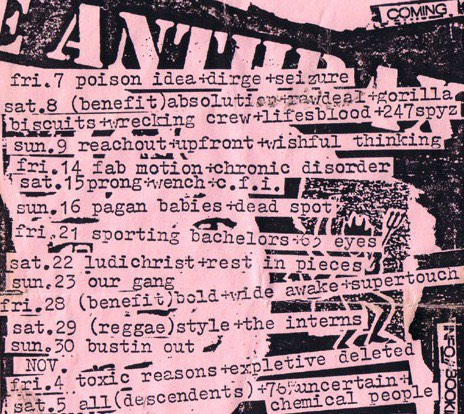 COMING
EANTHR
fri.7 poison idea+dirge+seizure
sat.8 (benefit)absolution+rawdeal+gorilla
biscuits+wrecking crew+lifesblood+247spyz
sun.9 reachout+upfront+wishful thinking
fri.14 fab motion+chronic disorder
sat.15prong+wench+c.f.i.
sun.16 pagan babies+dead spot
fri.21 sporting bachelors+65 eyes
sat.22 ludichrist+rest in pieces
sun.23 our gang
fri.28 (benefit)bold+wide awake+supertouch
sat.29 (reggae)style+the interns
sun.30 bustin out
NOV.
fri.4 toxic reasons+expletive deleted
sat.5 all(descendents)+76%uncertain+
chemical people